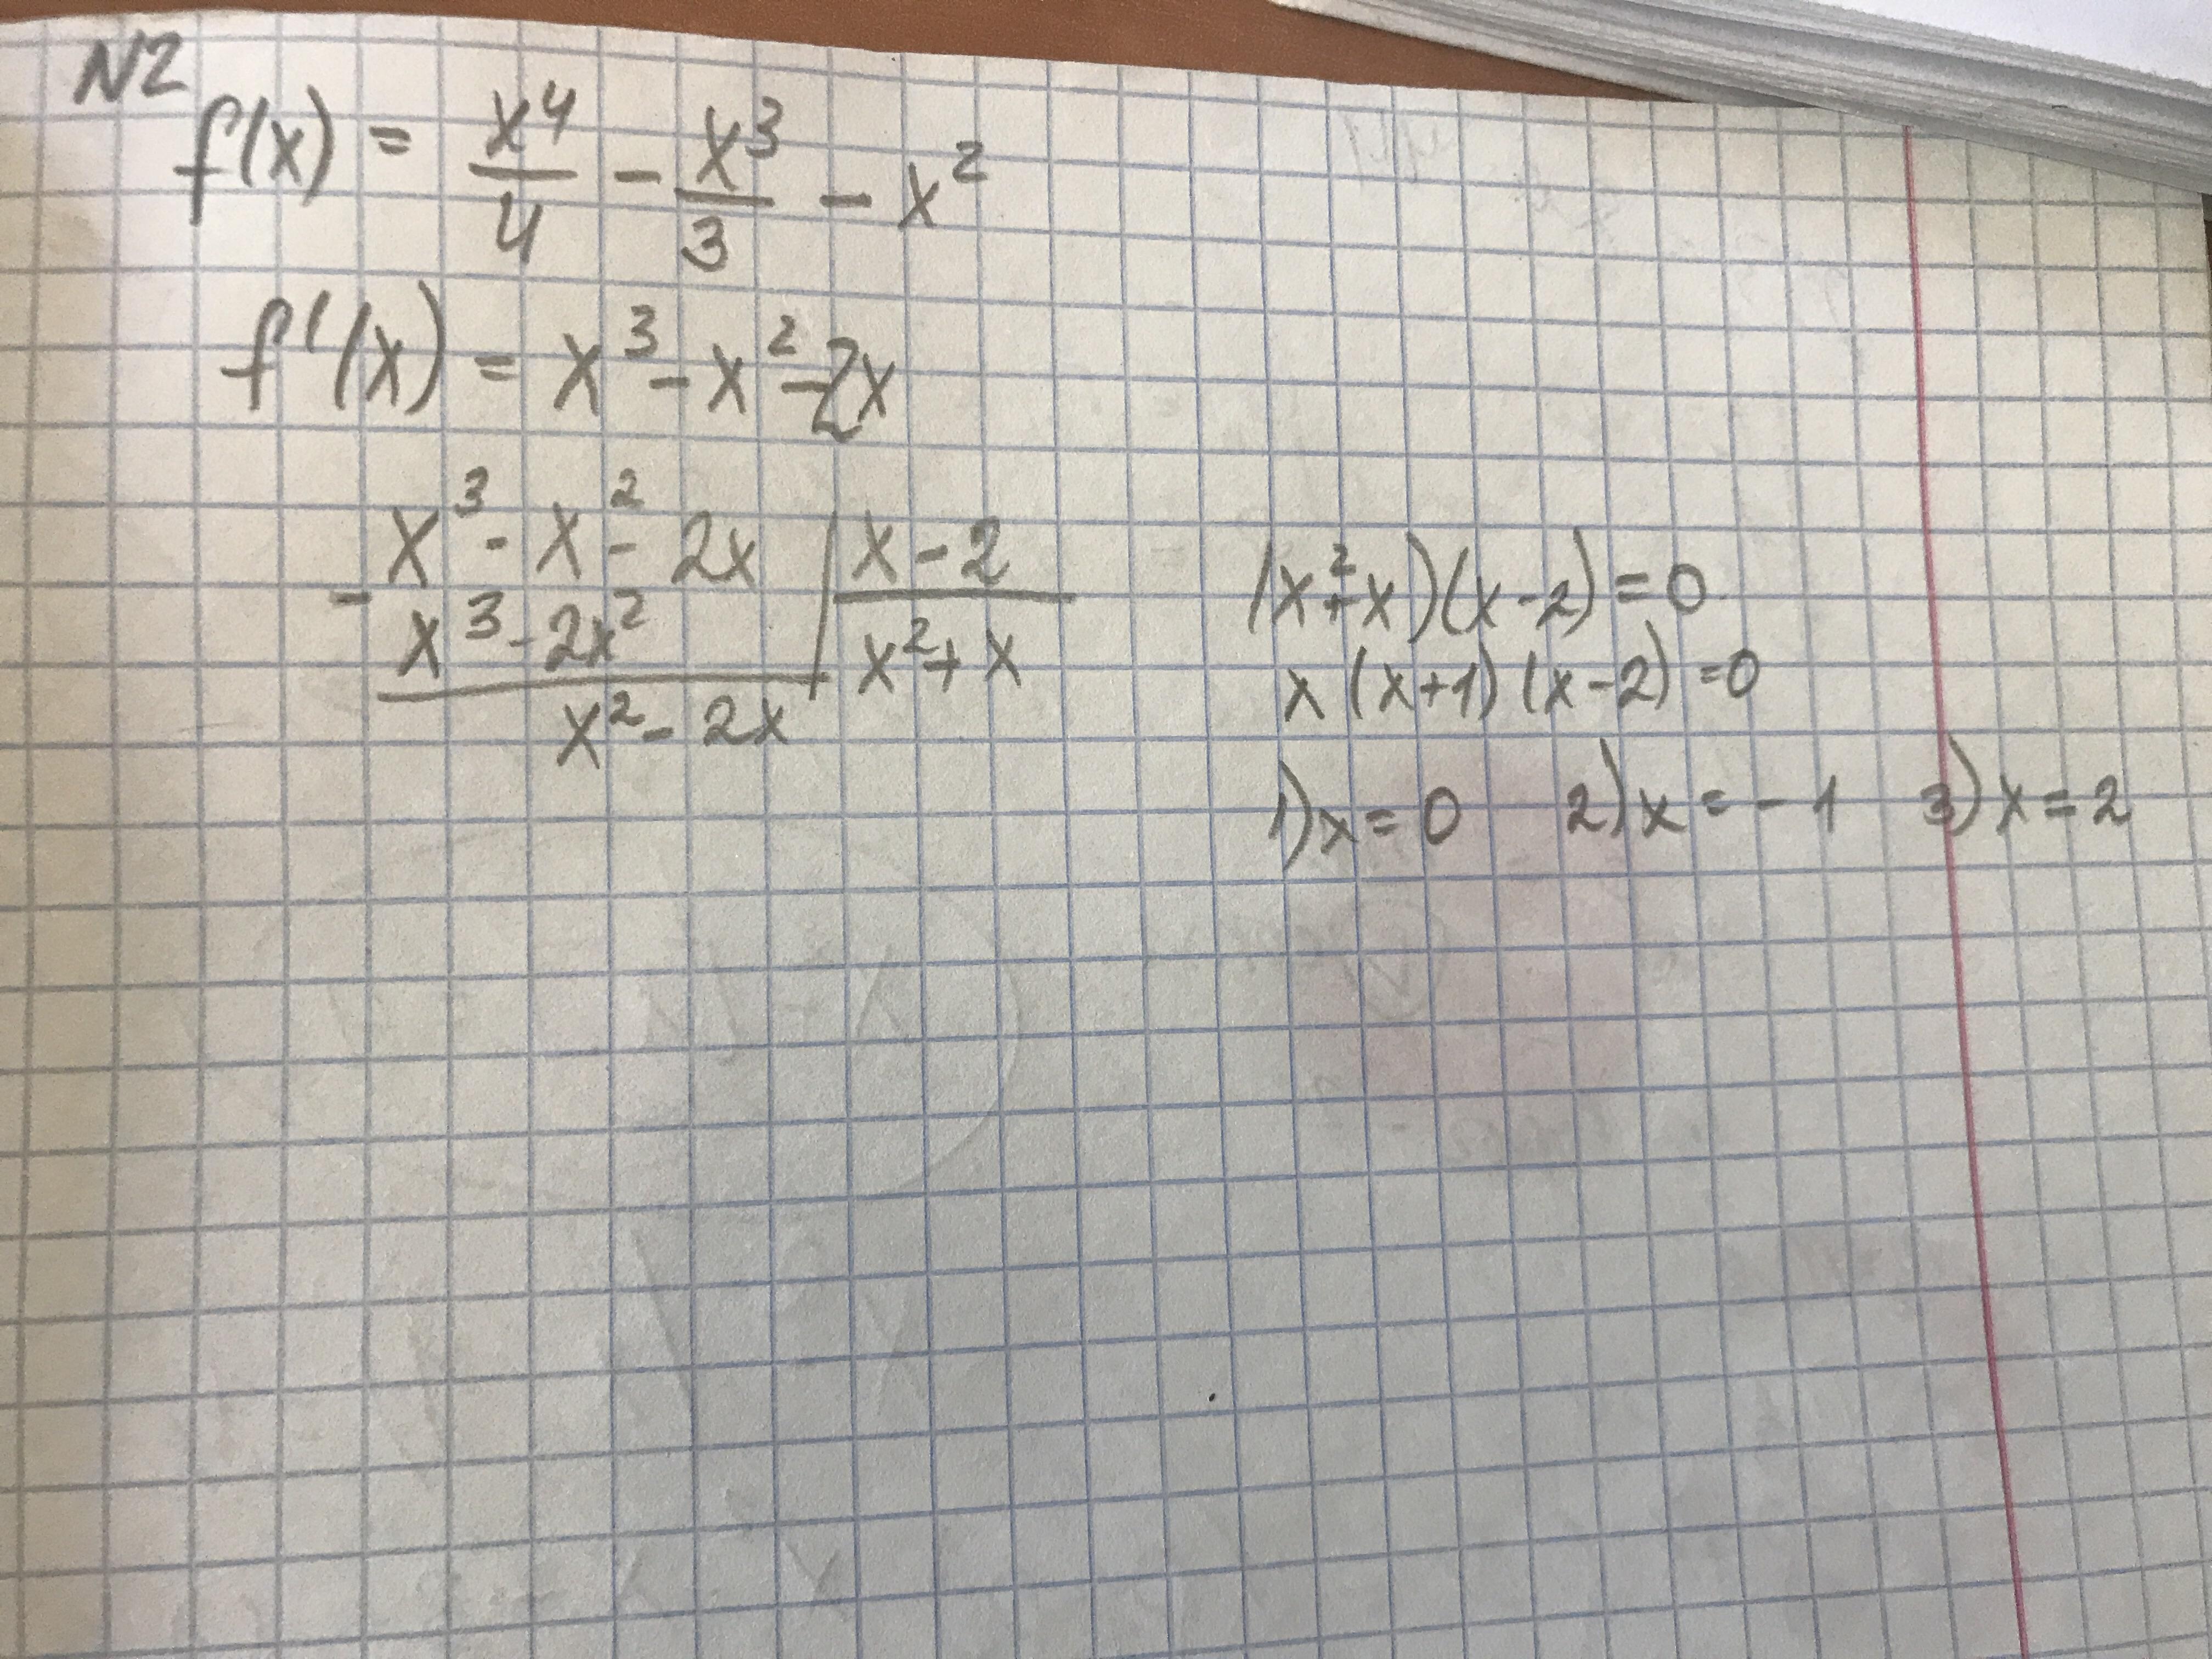 N2
f(x) = x⁴/4 - x³/3 - x²
f'(x) = x³ - x² - 2x
- x³ - x² - 2x | x - 2
x³ - 2x² | x² + x
x² - 2x
(x² + x)(x - 2) = 0
x (x+1) (x-2) = 0
1) x = 0 2) x = -1 3) x = 2